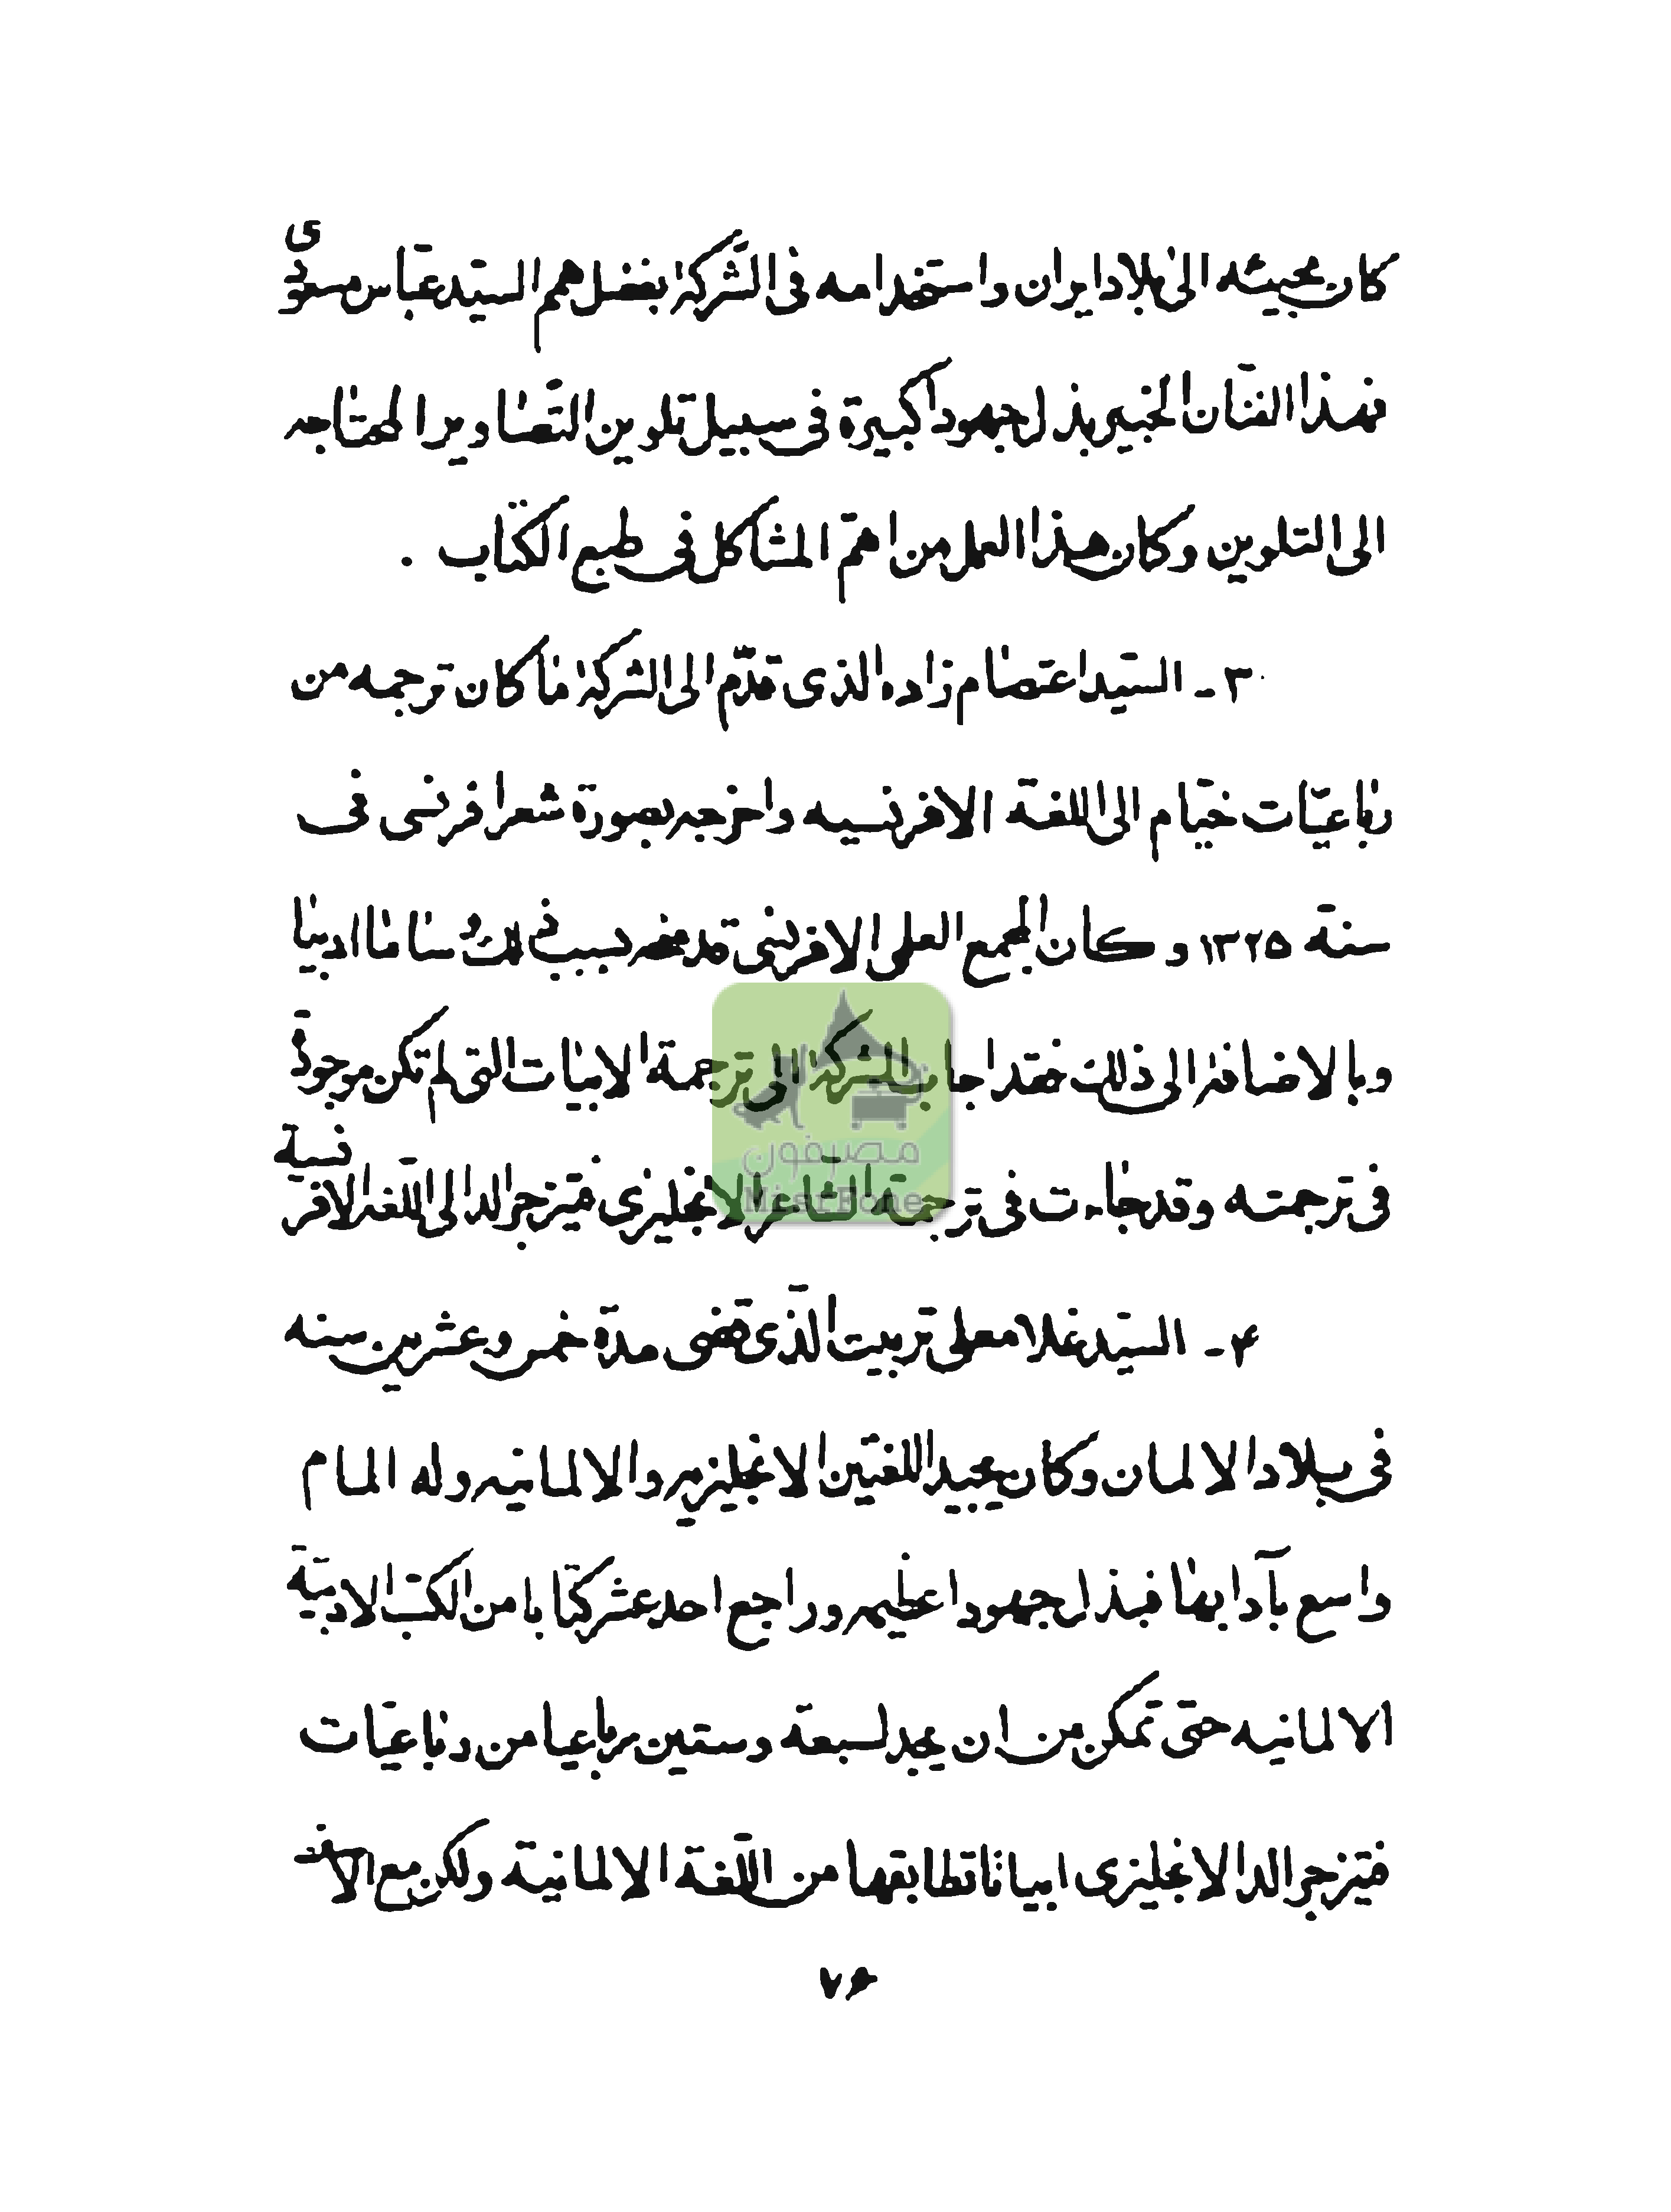 كان مجيئه الى بلاد ايران واستخدامه فى الشركة بفضل همم السيد عباس مسعودى
فهذا الفنان الخبير بذل جهودا كبيرة فى سبيل تلوين التصاوير المحتاجه
الى التلوين وكان هذا العمل من اهمّ المشاكل فى طبع الكتاب .
٣ـ السيد اعتصام زاده الذى قدّم الى الشركة ما كان ترجمه من
رباعيّات خيّام الى اللغة الافرنسيه واخرجه بصورة شعر افرنسى فى
سنة ١٣٢٥ و كان المجمع العلمى الافرنسى قد منحه بسبب ذلك وساما ادبيا
وبالاضافة الى ذلك فقد اجاب الشركة الى ترجمة الابيات التى لم تكن موجودة
فى ترجمته وقد جاءت فى ترجمة الشاعر الانجليزى فيتزجرالد الى اللّغة الافرنسية
۴ـ السيّد غلامعلى تربيت الّذى قضى مدة خمس وعشرين سنه
فى بلاد الالمان وكان يجيد اللغتين الانجليزيه والالمانيه وله المام
واسع بآدابها فبذل جهودا عظيمه وراجع احد عشر كتابا من الكتب الادبيّة
الالمانيه حتى تمكن من ان يجد لسبعة وستين رباعيا من رباعيّات
فيتزجرالد الانجليزى ابياتا تطابقها من اللّغة الالمانية ولكن مع الاسف
٧۶
مصريفون
MisrFone